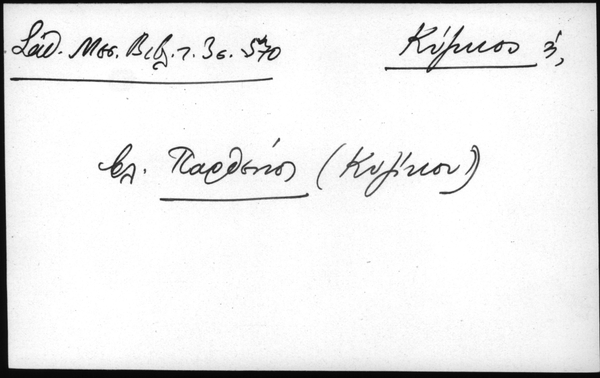 Σάθ. Μεσ. Βιβλ. τ. 3 σ. 570
Κύζικος ἡ,
βλ. Παρθένιος (Κυζίκου)